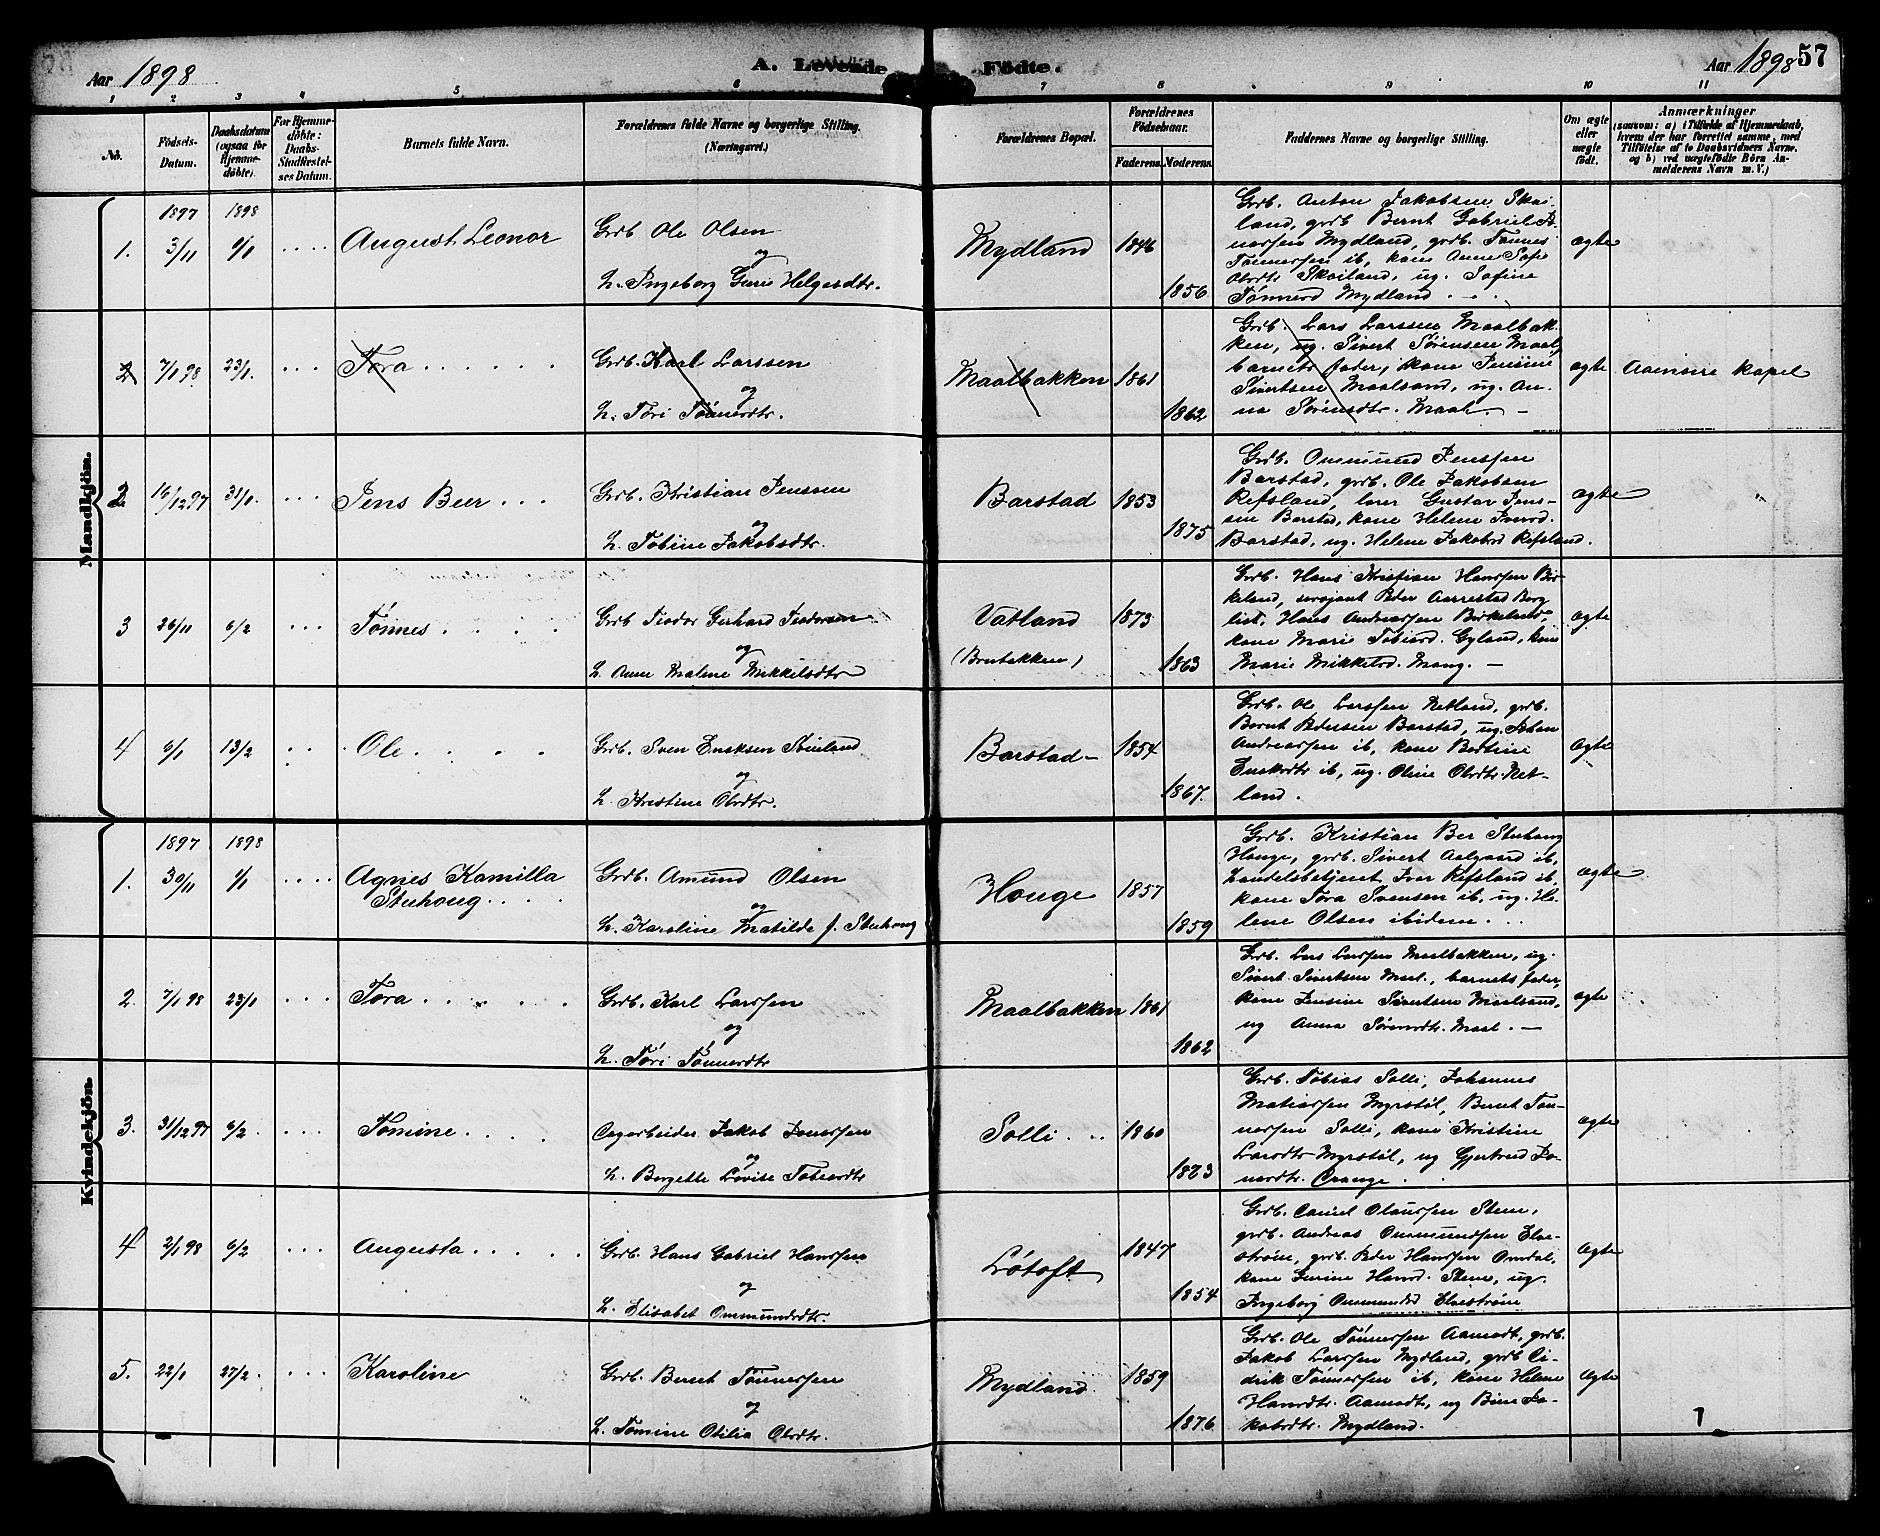 Aar 1898
A. Levende Fødte.
Aar 1898
57
1 2 3 4 5 6 7 8 9 10 11
No.
Fødsels-Datum.
Daabsdatum (ogsaa for Hjemme-døbte).
For Hjemme-døbte: Daabs-Stadfæstel-ses Datum.
Barnets fulde Navn.
Forældrenes fulde Navne og borgerlige Stilling.
(Næringsvei.)
Forældrenes Bopæl.
Forældrenes Fødselsaar.
Faderens. Moderens.
Faddernes Navne og borgerlige Stilling.
Om ægte eller uægte født.
Anmærkninger
(saasom: a) i Tilfælde af Hjemmedaab, hvem der har forrettet samme, med Tilføielse af to Daabsvidners Navne, og b) ved uægtefødte Børn Anmelderens Navn m. V.)
Mandkjön.
1897 1898
1. 3/11 1/1 August Leonor
Grdb Ole Olsen
og
h. Ingeborg Gurie Helgesdtr.
Mydland 1846
1856
Grdb. Anton Jakobsen Skai-
land, grdb Bernt Gabriel A-
narsen Mydland, grdb. Tønnes
Tønnessen ib, kone Anne Sofie
Olsdtr Skailand, ug. Sofine
Tønnesd Mydland.
ægte
2 7/1 98 23/1. Tora
Grdb. Karl Larssen
og
h. Tori Tønnesdtr.
Maalbakken 1861
1862
Grdb. Lars Larssen Maalbak-
ken, ug. Sivert Sørensen Maal,
barnets fader, kone Jensine
Sivertsen Maalsand, ug. An-
na Sørensdtr. Maal.
ægte
kapel
2 16/12 97 31/1. Jens Beer
Grdb. Kristian Jenssen
og
h. Tobine Jakobsdtr.
Barstad 1853
1875
Grdb. Ommund Jenssen
Barstad, grdb. Ole Jakobsen
Refsland, lærer Gustav Jens-
sen Barstad, kone Helene Iversd.
Barstad, ug. Helene Jakobsd Refsland.
ægte
3 26/11 6/2 Tønnes
Grdb Teodor Gerhard Teodorsen
og
h. Anne Malene Mikkelsdtr
Vatland
(Brubakken) 1873
1863
Grdb. Hans Kristian Hanssen Bir-
keland, sersjant Peder Aarrestad Berg-
lid, Hans Andreassen Birkeland,
kone Marie Tobiasd. Gyland, kone
Marie Mikkelsd. Mong.
ægte
4 6/1 13/2 Ole
Grdb. Sven Eriksen Svinland
og
h. Kristine Olsdtr.
Barstad 1854
1867.
Grdb. Ole Larssen Netland, grdb.
Bernt Pedersen Barstad, ug. Peder
Andreassen ib, kone Bertine
Eriksdtr ib, ug. Oline Olsdtr. Net-
land.
ægte
Kvindekjön.
1897 1898
1. 30/11 1/1 Agnes Kamilla
Stuhoug
Grdb. Amund Olsen
og
h. Karoline Matilde f. Stuhoug
Houge 1857
1859
Grdb. Kristian Ber Stuhoug
Houge, grdb. Sivert Aalgaard ib,
Handelsbetjent Ivar Refsland ib
kone Tora Svensen ib, ug. He-
lene Olsen ibidem.
ægte
2. 7/1 98 23/1 Tora
Grdb. Karl Larssen
og
h. Tori Tønnesdtr
Maalbakken 1861
1862
Grdb. Lars Larssen Maalbakken, ug.
Sivert Sivertsen Maal., barnets fader,
kone Jensine Sivertsen Maalsand,
ug Anna Sørensdtr. Maal.
ægte
3. 31/12 97 6/2. Tomine
Jakob Jonassen
og
h. Borgette Lovise Tobiasdtr
Solli 1860
1873
Grdb. Tobias Solli, Johannes
Matiassen Myrstøl, Bernt Tøn-
nessen Solli, kone Kristine
Larsdtr Myrstøl, ug Gjertrud Jo-
nasdtr. Orange.
ægte
4 2/1 98 6/2 Augusta
Grdb. Hans Gabriel Hanssen
og
h. Elisabet Ommundsdtr.
Løtoft 1847
1854
Grdb. Daniel Olaussen Stene,
grdb. Andreas Ommundsen Elve-
strøm, grdb. Peder Hanssen Omdal,
kone Gurine Hansd. Stene, ug
Ingeborg Ommundsd Elvestrøm
ægte
5. 22/1 27/2. Karoline
Grdb. Bernt Tønnessen
og
h. Tomine Otilia Olsdtr.
Mydland 1859
1876
Grdb. Ole Tønnessen Aamodt, grdb.
Jakob Larssen Mydland, grdb Di-
drik Tønnessen ib, kone Helene
Hansdtr. Aamodt, ug Bine Ja-
kobsdtr. Mydland.
ægte